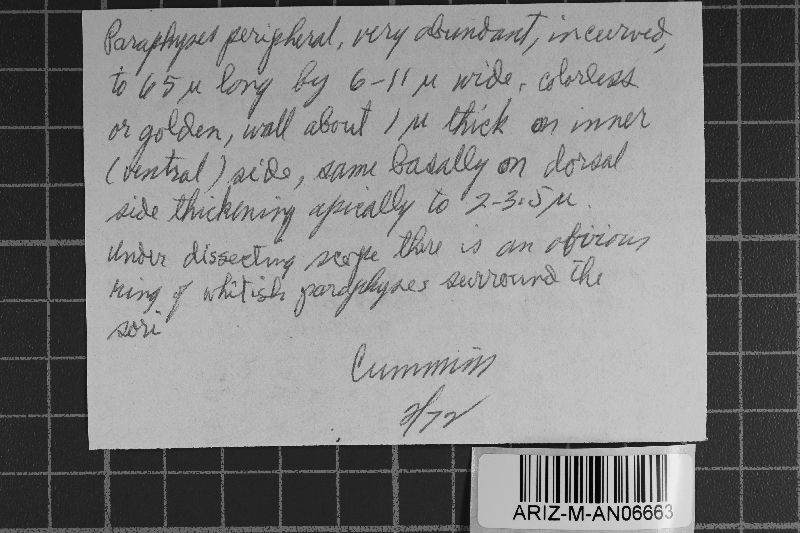 Paraphyses peripheral, very abundant, incurved,
to 65 µ long by 6-11 µ wide, colorless
or golden, wall about 1 µ thick on inner
(ventral) side, same basally on dorsal
side thickening apically to 2-3.5 µ.
Under dissecting scope there is an obvious
ring of whitish paraphyses surround the
sori
Cummins
2/72
ARIZ-M-AN06663